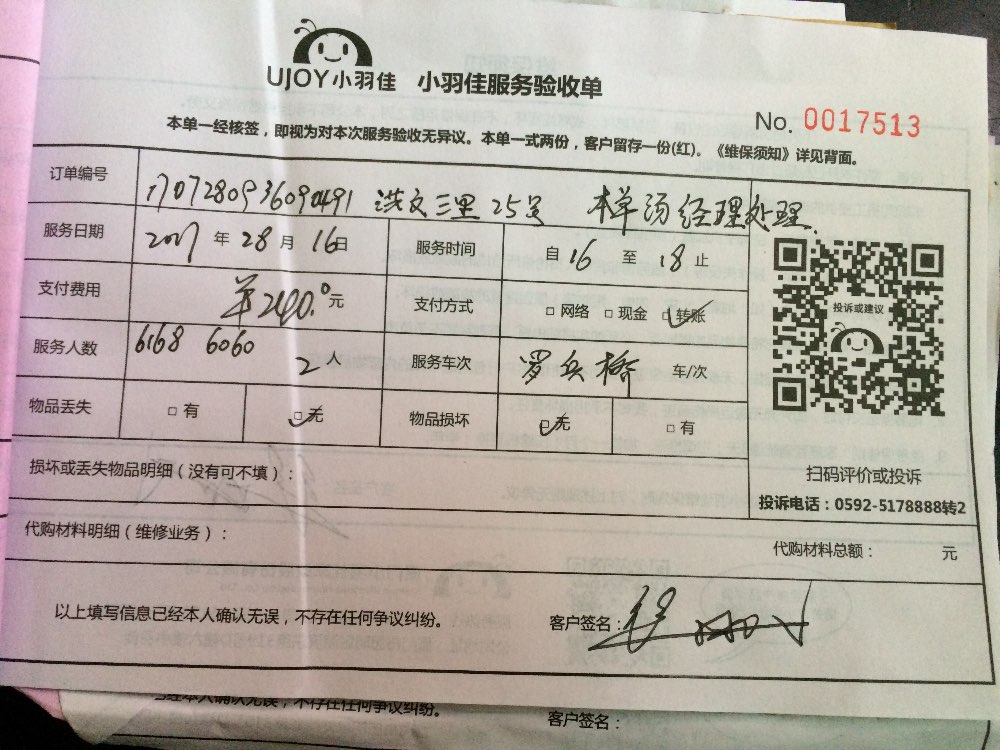 UJOY小羽佳 小羽佳服务验收单
No. 0017513
本单一经核签，即视为对本次服务验收无异议。本单一式两份，客户留存一份(红)。《维保须知》详见背面。
订单编号 1707280936090491 洪文三里25号 本单汤经理处理.
服务日期 2017 年 28 月 16 日 服务时间 自 16 至 18 止
支付费用 ¥240.0元 支付方式 □ 网络 □ 现金 □ 转账
服务人数 6168 6060 2 人 服务车次 罗兵桥 车/次
投诉或建议
物品丢失 □ 有 □ 无 物品损坏 □ 无 □ 有
扫码评价或投诉
损坏或丢失物品明细（没有可不填）：
投诉电话：0592-5178888转2
代购材料明细（维修业务）：
代购材料总额： 元
以上填写信息已经本人确认无误，不存在任何争议纠纷。 客户签名：
已经本人确认无误，不存在任何争议纠纷。
客户签名：